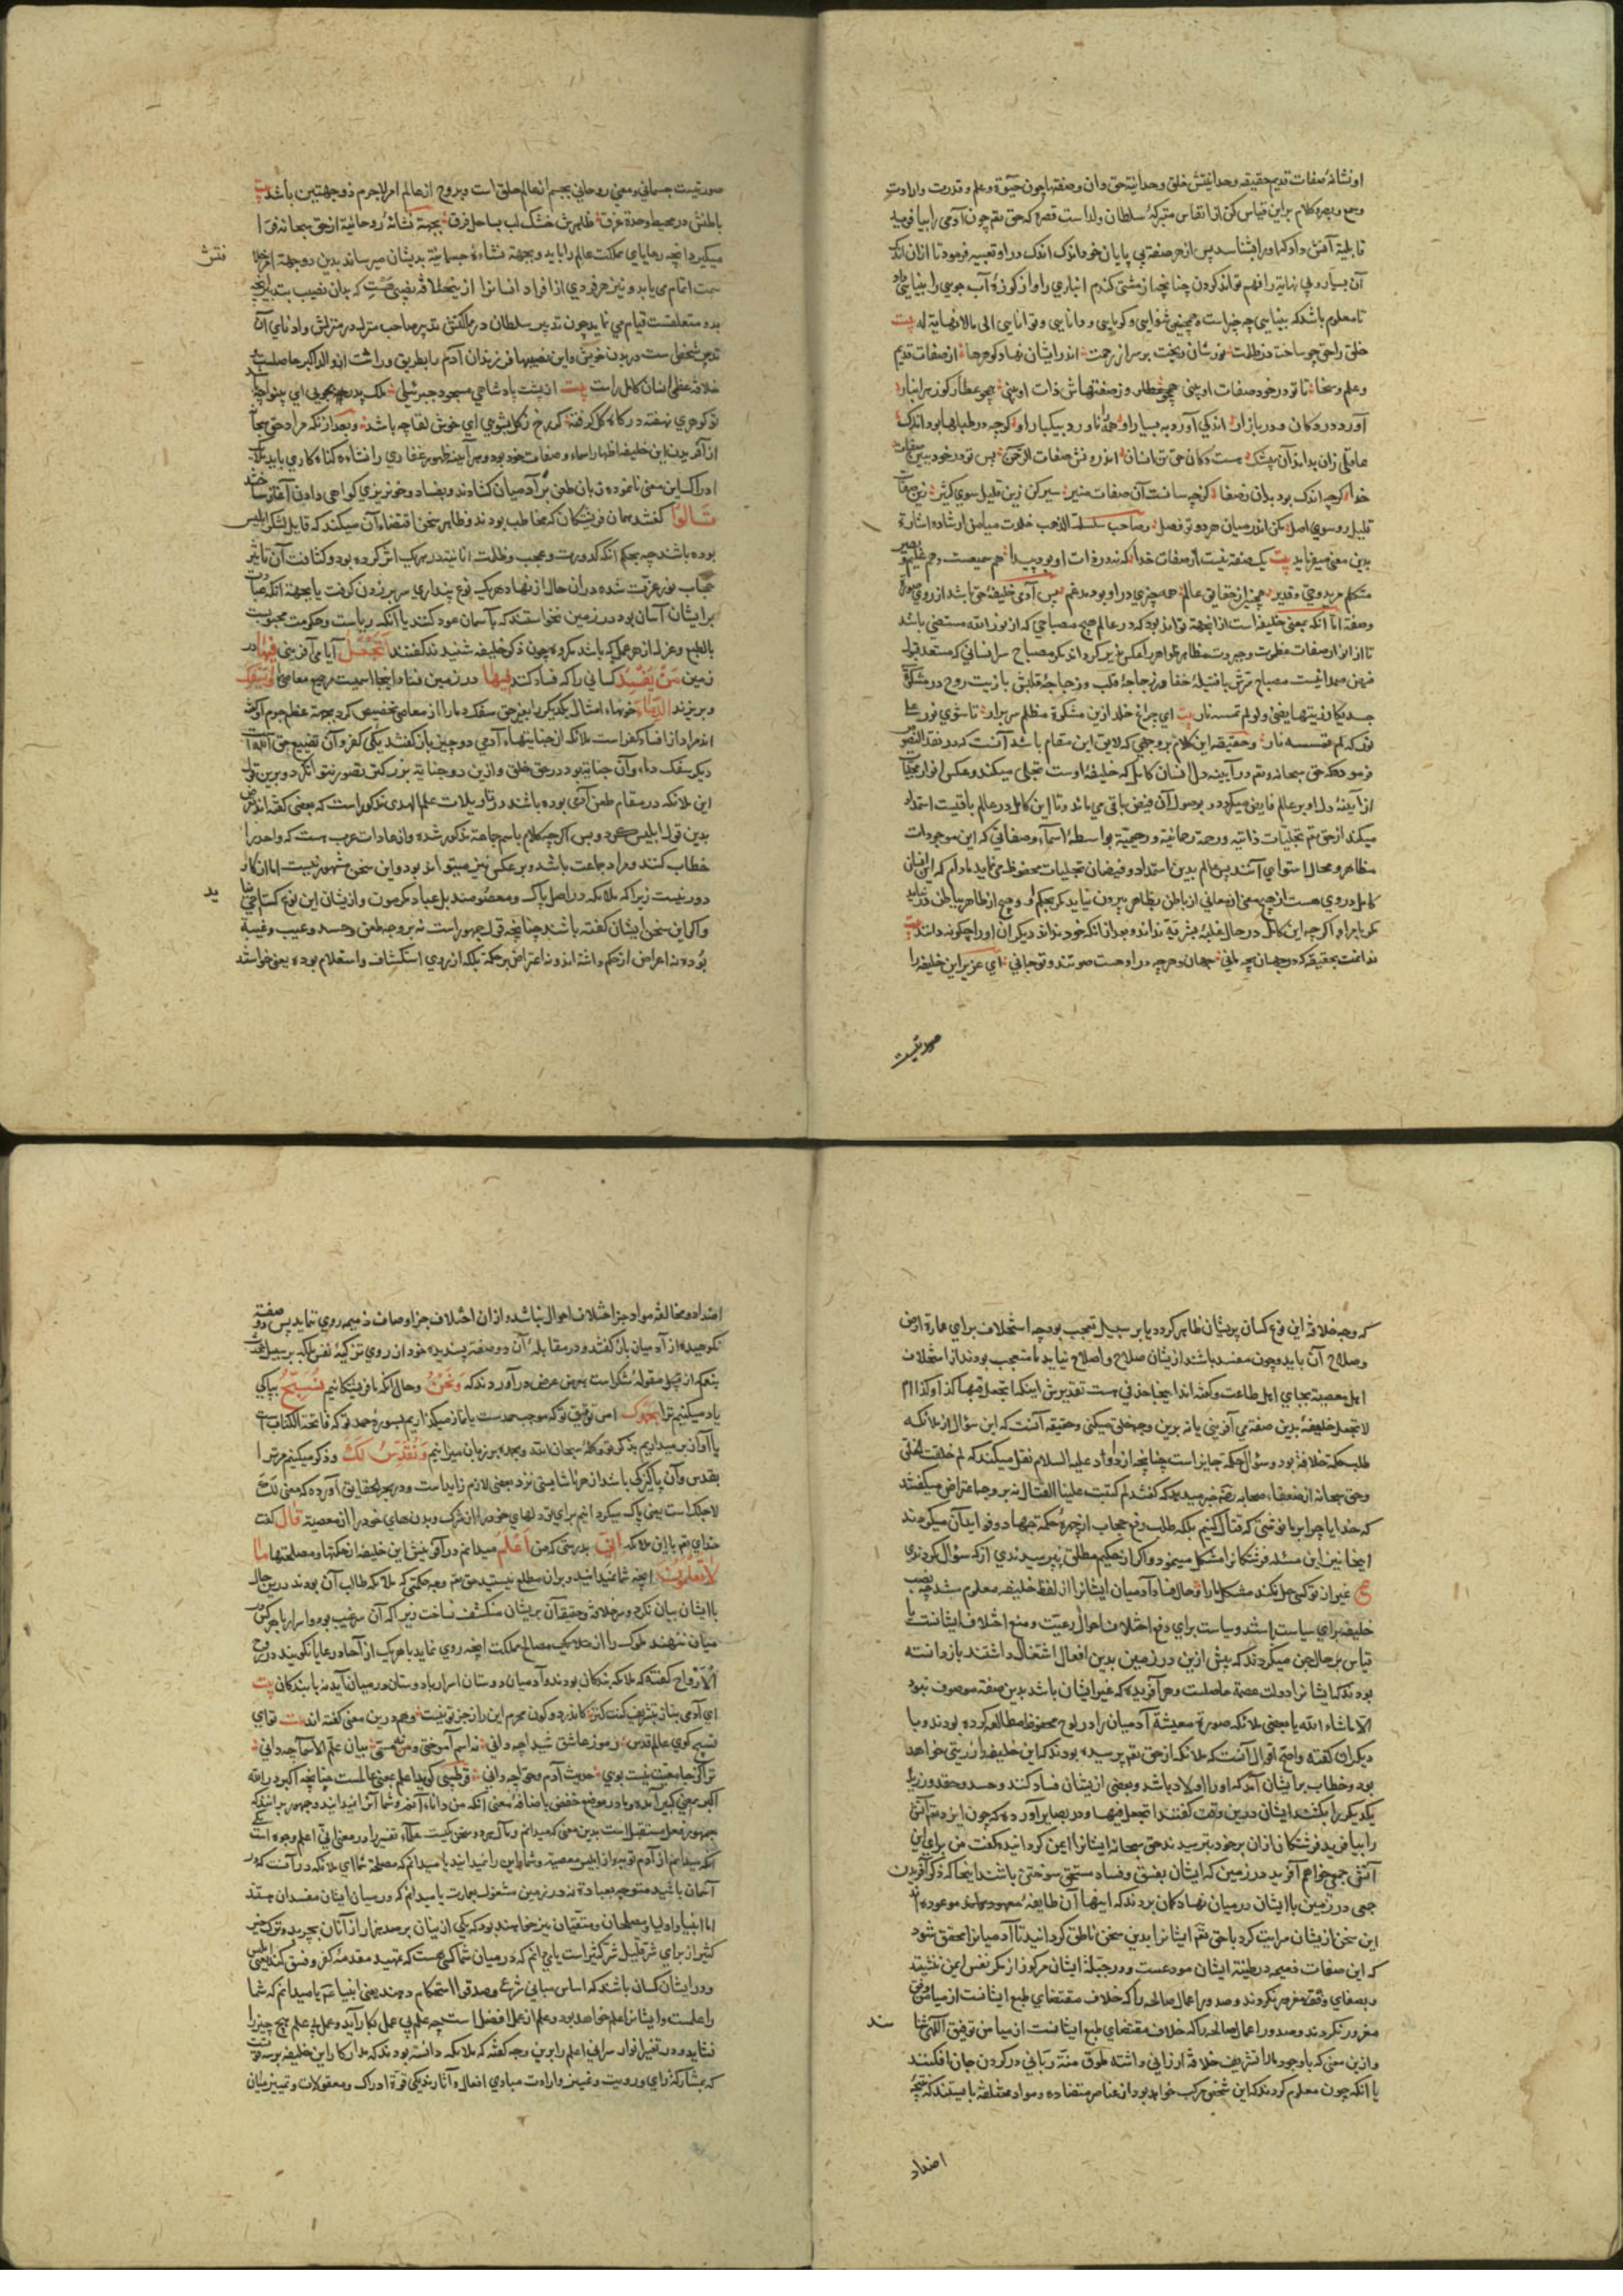 او نشانهٔ صفات قدیم حقیقه وحدانیتش خلق وحدانیة حق دان وصفتها چون حیوة وعلم وقدرت وارادت
وسمع وبصر وکلام براین قیاس کن از انفاس متبرکهٔ سلطان ولد است قصه که حق تقم چون آدمی را بیافرید
قابلیة آتش داد که اورا بشناسد پس از هر صفتی بی پایان خود اندک اندک در او تعبیه فرمود تا ازان اندک
آن بسیار وبی نهایة را فهم تواند کردن چنانچه از مشتی کندم انباری را واز کوزهٔ آب جویی را بینایی داد
تا معلوم باشد که بینایی چه چیز است وهمچنین شنوایی وکویایی ودانایی وتوانایی الی مالانهایة له بیت
خلق را حق چو ساخت در ظلمت نورشان ریخت بر سر از رحمت اندر ایشان نهاد کوهرها از صفات قدیم
وعلم وسخا تا تو در خود صفات او بینی وز صفتهاش ذات او بینی همچو عطار کوز هر انبار
آورد در دکان ودر بازار اندکی آورد به بسیار او همه ناورد بیکبار او کرچه در طبلها بود اندک
عاقلی زان بداند آن بیشک هست دکان حق تن انسان اندرونش صفات الرحمن پس تو در خود ببین صفات
خدا کرچه اندک بود بدان رضا کرچه سانت آن صفات منیر سیر کن زین قلیل سوی کثیر زین صفات
قلیل رو سوی اصل مکن اندر میان هر دو تو فصل وصاحب سلسلة الذهب خلدت میامن ارشاده اشارة
بدین معنی میفرماید بیت یک صفة نیست از صفات خدا که نه در ذات او بود پیدا هم سمیعست وهم علیم وبصیر
متکلم مرید وحی وقدیر همچنین از حقایق عالم همه چیزی در او بود مدغم پس آدمی خلیفهٔ حق باشد از روی صورة
وصفة اما آنکه بمعنی خلیفه است از انجهة تواند بود که در عالم هیچ مصباحی که از نور الله مستضی باشد
تا از انوار صفات عظموت وجبروت مظاهر ظواهر را عکس پذیر کرداند مکر مصباح سر انسانی که مستعد قبول
فیض صمدانیست مصباح سرش با فتیلهٔ خفا ودر زجاجهٔ قلب وزجاجهٔ قلبش با زیت روح در مشکوة
جسد یکاد زیتها یضئ ولو لم تمسسه نار بیت ای چراغ خلد ازین مشکوة مظلم سر برار تا شوی نور علی
نور که لم تمسسه نار وحقیقة این کلام بر وجهی که لایق این مقام باشد آنست که در نقد النصوص
فرموده که حق سبحانه وتم در آیینه دل انسان کامل که خلیفهٔ اوست تجلی میکند وعکس انوار تجلیات
از آیینهٔ دل او بر عالم فایض میکردد وبوصول آن فیض باقی می ماند وتا این کامل در عالم باقیست استمداد
میکند از حق تم تجلیات ذاتیه ورحمة رحمانیة ورحیمیة بواسطهٔ اسماء وصفاتی که این موجودات
مظاهر ومحال استوای آنند پس عالم بدین استمداد وفیضان تجلیات محفوظ می نماید مادام که این انسان
کامل در وی هست از هیچ معنی از معانی از باطن بظاهر بیرون نیاید مکر بحکم او وهیچ از ظاهر بباطن در نیاید
مکر بامر او اکرچه این کامل در حال غلبهٔ بشریة نداند وبعد از انکه خود نداند دیکران اورا چکونه دانند بیت
ندانمت بحقیقة که در جهان بچه مانی جهان وهرچه در او هست صورتند وتو جانی ای عزیز این خلیفه را
صورتیست
صورتیست جسمانی ومعنی روحانی بجسم از عالم خلق است وبروح از عالم امر لاجرم ذو جهتین باشد بیت
باطنش در محیط وحدة غرق ظاهرش خشک لب بساحل فرق بجهة نشاهٔ روحانیة از حق سبحانه فرا
میکیرد انچه رعایای مملکت عالم را باید وبجهة نشاهٔ جسمانیة بدیشان میرساند بدین دو جهة امر خلافتش
سمت اتمام می یابد ونیز هر فردی از افراد انسانرا ازین خلافة نصیبی هست که بدان نصیب بتدبیر انچه
بدو متعلقست قیام می نماید چون تدبیر سلطان در مملکتش تدبیر صاحب منزل در منزلش وادنای آن
تدبیر شخص است در بدن خویش واین نصیبها فرزندان آدم را بطریق وراثت از والد اکبر حاصلست
خلافة عظمی انسان کامل راست بیت ازینست پادشاهی مسجود جبرئیلی ملک پدر بجویی ای بینوا چه باشد
تو کوهری نهفته در کاه کل کرفته کر رخ ز کل بشویی ای خوش لقا چه باشد وبعد از انکه مراد حق سبحانه
از آفریدن این خلیفه اظهار اسماء وصفات خود بود وهر آینه ظهور غفاری را نشاهٔ کناه کاری باید ملایکه
ادراک این معنی نانموده زبان طعن بر آدمیان کشادند وبفساد وخونریزی کواهی دادن آغاز ساختند
قالوا کفتند همان فرشتکان که مخاطب بودند وظاهر سخن اقتضاء آن میکند که قایل لشکر ابلیس
بوده باشند چه بحکم انکه کدورت وعجب وظلمت انانیت در هریک اثر کرده بود وکثافت آن تاثیر
حجاب نور عزت شده در ان حال از نهاد هریک نوع پنداری سر برزدن کرفت یا بجهة انکه عبادت
بر ایشان آسان بود در زمین نخواستند که بآسمان عود کنند یا انکه ریاست وحکومت محبوبست
بالطبع وعزل از هر عمل که باشد مکروه چون ذکر خلیفه شنیدند کفتند أتجعل آیا می آفرینی فیها در
زمین من یفسد کسانی را که فساد کنند فیها در زمین فساد اینجا اسمیست مرجع معاصی ویسفک
وبریزند الدماء خونهاء امثال یکدیکر را بغیر حق سفک دما را از معاصی تخصیص کرد بجهة عظم جرم او وکفته
اند مراد از افساد کفر است ملائکه از جنایتهاء آدمی دو چیز باز کفتند یکی کفر وآن تضییع حق الله است
دیکر سفک دماء وآن جنایة بود در حق خلق وازین دو جنایة بزرکتر تصور نتوان کرد وبرین قول
این ملائکه در مقام طعن آدمی بوده باشند در تاویلات علم الهدی مذکور است که بعضی کفته اند غرض
بدین قول ابلیس بود وبس اکرچه کلام باسم جماعة مذکور شده واز عادات عرب هست که واحد را
خطاب کنند ومراد جماعت باشد وبر عکس نیز میتواند بود واین سخن مشهور نیست اما از کار
دور نیست زیرا که ملائکه در اصل پاک ومعصومند بل عباد مکرمون واز یشان این نوع کستاخی نشاید
واکر این سخن ایشان کفته باشند چنانچه قول جمهور است نه بر وجه طعن وحسد وعیب وغیبة
بوده نه اعراض از حکم داشته اند ونه اعتراض بر حکمة بلکه از روی استکشاف واستعلام بوده یعنی خواستند
که وجه خلافة این نوع کسان بریشان ظاهر کردد یا بر سبیل تعجب بود چه استخلاف برای عمارة ارض
وصلاح آن باید وچون مفسد باشند از یشان صلاح واصلاح نیاید تا متعجب بودند از استخلاف
اهل معصیة بجای اهل طاعت وکفته اند اینجا حذفی هست تقدیرش اینکه اتجعل فیها کذا وکذا ام
لا تجعل خلیفهٔ بدین صفة می آفرینی یا نه برین وجه خلق میکنی وحقیقه آنست که این سؤال از ملائکه
طلب حکمة خلافة بود وسؤال حکمة جایز است چنانچه از داود علیه السلام نقل میکنند که لم خلقت الخلق
وحق سبحانه از ضعفاء صحابه رضهم خبر میدهد که کفتند لم کتبت علینا القتال نه بر وجه اعتراض میکفتند
که خدایا چرا بر ما نوشتی که قتال کنیم بلکه طلب رفع حجاب از چهرهٔ حکمة جهاد وفواید آن میکردند
اینجا نیز این مسئله فرشتکانرا مشکل مینمود واکر از حکیم مطلق نپرسیدندی از که سؤال کردندی
ع غیر از تو کسی حل نکند مشکل ما را وحال فساد آدمیان ایشانرا از لفظ خلیفه معلوم شد چه نصب
خلیفه برای سیاست باشد وسیاست برای دفع اختلاف احوال رعیت ومنع اختلاف ایشانست یا
قیاس بر حال جن میکردند که پیش ازین در زمین بدین افعال اشتغال داشتند باز دانسته
بودند که ایشانرا دولت عصمة حاصلست وهر آفریده که غیر ایشان باشد بدین صفة موصوف نبود
الا ماشاء الله یا بعضی ملائکه صورة معیشة آدمیان را در لوح محفوظ مطالعه کرده بودند وبا
دیکران کفته واصح اقوال آنست که ملائکه از حق تقم پرسیده بودند که این خلیفه را ذریتی خواهد
بود وخطاب بریشان آمد که اورا اولاد باشد وبعضی از یشان فساد کنند وحسد وحقد ورزند
یکدیکر را بکشند ایشان درین وقت کفتند اتجعل فیها ودر بصایر آورده که چون ایزد تقم آتش
را بیافرید فرشتکان ازان بر خود بترسیدند حق سبحانه ایشانرا ایمن کردانیده کفت من برای این
آتش جمعی خواهم آفرید در زمین که ایشان بفسق وفساد مستحق سوختن باشند اینجا که ذکر آفریدن
جمعی در زمین با ایشان در میان نهاد کمان بردند که اینها آن طایفهٔ موعوده اند
این سخن از یشان سرایت کرد یا حق تقم ایشانرا بدین سخن ناطق کردانید تا آدمیانرا محقق شود
که این صفات ذمیمه در طینة ایشان مودعست ودر جبلة ایشان مرکوز از مکر نفس ایمن ننشینند
وبصفای وقت مغرور نکردند وصدور اعمال صالحه را که خلاف مقتضای طبع ایشانست از میامن
مغرور نکردند وصدور اعمال صالحه را که خلاف مقتضای طبع ایشانست از میامن توفیق الهی شناسند
وازین معنی که با وجود ما را تشریف خلافة ارزانی داشته طوق منة ربانی در کردن جان افکنند
یا انکه چون معلوم کردند که این شخص مرکب خواهد بود از عناصر متضاده ومواد مختلفه دانستند که نتیجهٔ
اضداد
اضداد ومخالفة مواد جز اختلاف احوال نباشد وازان اختلاف جز اوصاف ذمیمه روی ننماید پس دو صفة
نکوهیده از آدمیان باز کفتند ودر مقابلهٔ آن دو صفة پسندیده خود از روی تزکیهٔ نفس بلکه بر سبیل تحدث
بنعم که از قبیل مقولهٔ شکر است بمعرض عرض در آوردند که ونحن وحال انکه ما فرشتکانیم نسبح بپاکی
یاد میکنیم ترا بحمدک امر توفیق تو که موجب حمدست یا نماز میکذاریم بسورهٔ حمد تو که فاتحة الکتاب است
یا آواز بر میداریم بذکر تو وکلمهٔ سبحان الله وبحمده بر زبان میرانیم ونقدس لک وذکر میکنیم مر ترا
بقدس وآن پاکیزکی باشد از هر ناشایستی نزد بعضی لام زایداست ودر بحر الحقایق آورده که معنی لک
لاجلک است یعنی پاک میکردانیم برای تو دلهای خود را از شرک وبدنهای خود را از معصیة قال کفت
خدای تم با این ملائکه انی بدرستی که من اعلم میدانم در آفرینش این خلیفه از حکمتها ومصلحتها ما
لا تعلمون انچه شما نمیدانید وبران مطلع نیستید حق تم وجه حکمتی که ملائکه طالب آن بودند درین حال
با ایشان بیان نکرد وسر خلافة وحقیقة آن بریشان منکشف نساخت زیرا که آن سر غیب بود واسرار با هر کس در
میان ننهند ملوک را از ممالک مصالح مملکت انچه روی نماید با هریک از آحاد رعایا نکویند در روح
الارواح کفته که ملائکه بندکان بودند وآدمیان دوستان اسرار با دوستان در میان آید نه با بندکان بیت
ای آدمی بناز بتشریف کنت کنز کاندر دو کون محرم این راز جز تو نیست وهم درین معنی کفته اند بیت تو ای
تسبیح کوی عالم قدس رموز عاشق شیدا چه دانی نه اسم آموختی ونه مسمی بیان علم الاسما چه دانی
ترا کز جامعیت نیست بویی حدیث آدم وحوا چه دانی قرطبی کوید اعلم بمعنی عالمست چنانچه اکبر در الله
اکبر بمعنی کبیر آمده وما در موضع خفض باضافهٔ معنی آنکه من دانام آنرا وشما آنرا نمیدانید وجمهور برانند که
جمهور فعل مستقبلست بدین معنی که میدانم ومآل هر دو سخن یکیست علماء تفسیر را در معنی انی اعلم وجوه است
آنکه میدانم از آدم توبه واز ابلیس معصیة وشما این را نمیدانید یا میدانم که مصلحة شما ای ملائکه در آنست که در
آسمان باشید متوجه بعبادة نه در زمین مشغول بعمارت یا میدانم که در میان ایشان مفسدان هستند
اما انبیا واولیا ومصلحان ومتقیان نیز خواهند بود که یکی از یشان بر صد هزار از آنان بچربد وترک خیر
کثیر از برای شر قلیل شر کثیر است یا می دانم که در میان شما کسی هست که تمهید مقدمهٔ کفر وفسق کند یعنی ابلیس
ودر ایشان کسان باشند که اساس مبانی شرع وصدق را استحکام دهند یعنی انبیا عم یا میدانم که شما
را عملست وایشانرا علم خواهد بود وعلم از عمل افضل است چه علم بی عمل بکار آید وعمل بی علم هیچ چیز را
نشاید ودر تفسیر انوار سر انی اعلم را برین وجه کفته که ملائکه دانسته بودند که مدار کار این خلیفه بر سه قوتست
که بمشارکهٔ رای ورویت وغیره وارادت مبادی افعال وآثار زندکی قوة ادراک ومعقولات وتمییز میان